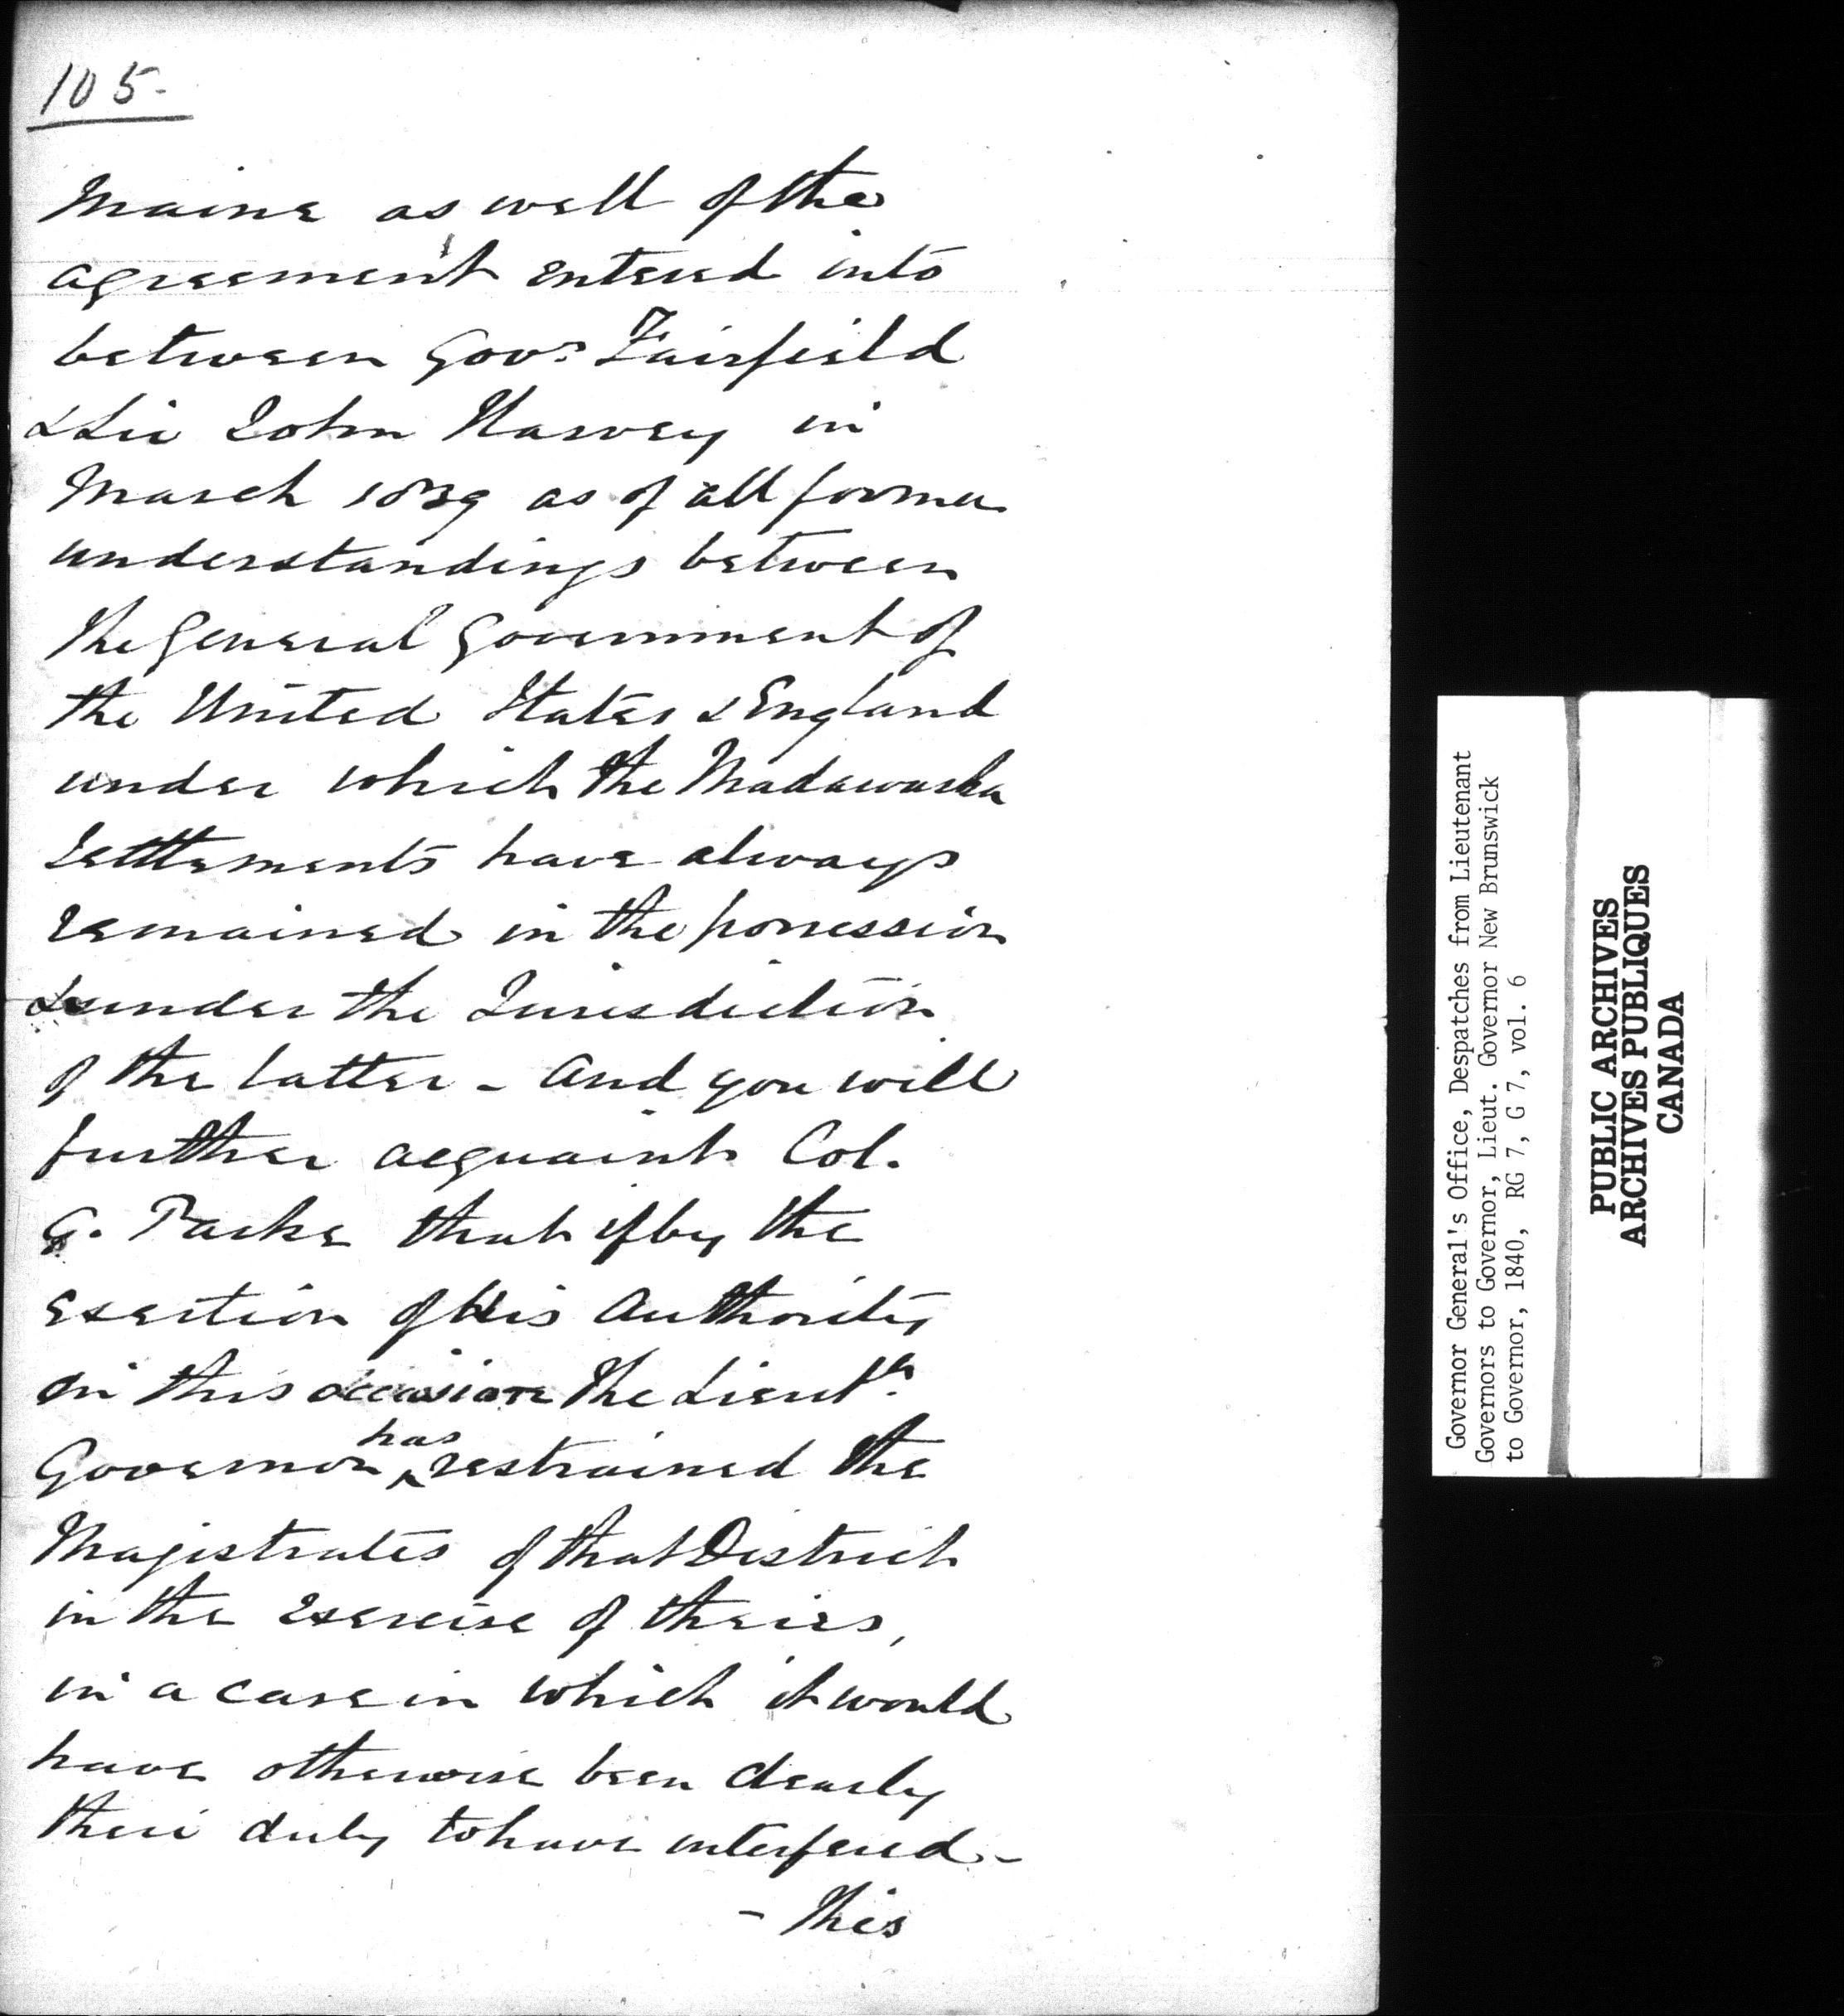 105-
Maine as well of the
agreement entered into
between Gov.r Fairfeild
& Sir John Harvey in
March 1839 as of all former
understandings between
the General Government of
the United States & England
under which the Madawaska
Settlements have always
remained in the possession
& under the Jurisdiction
of the latter - And you will
further acquaint Col.
G. Parke that if by the
exertion of His Authority
on this occasion the Lieut.
Governor has restrained the
Magistrates of that District
in the exercise of theirs,
in a case in which it would
have otherwise been clearly
their duty to have interfered -
- This
Governor General's Office, Despatches from Lieutenant
Governors to Governor, Lieut. Governor New Brunswick
to Governor, 1840, RG 7, G 7, vol. 6
PUBLIC ARCHIVES
ARCHIVES PUBLIQUES
CANADA